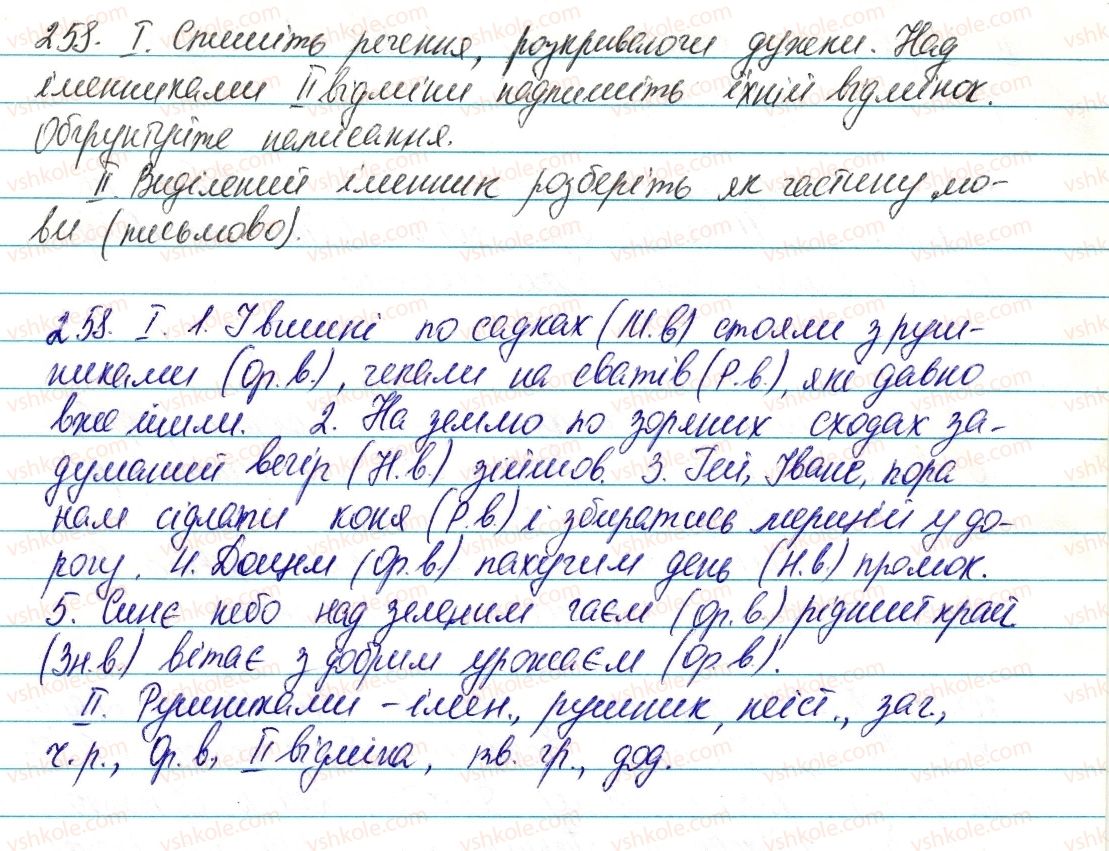 258. I. Спишіть речення, розкриваючи дужки. Над
іменниками II відміни надпишіть їхній відмінок.
Обґрунтуйте написання.
II. Виділений іменник розберіть як частину мо-
ви (письмово).
258. I. 1. І вишні по садках (М.в) стояли з руш-
никами (Ор.в.), чекали на сватів (Р.в.), які давно
вже йшли. 2. На землю по зоряних сходах за-
думаний вечір (Н.в.) зійшов. 3. Гей, Іване, пора
нам сідлати коня (Р.в.) і збиратись мерщій у до-
рогу. 4. Дощем (Ор.в.) пахучим день (Н.в.) промок.
5. Синє небо над зеленим гаєм (Ор.в.) рідний край
(Зн.в.) вітає з добрим урожаєм (Ор.в.).
II. Рушниками – імен., рушник, неіст., заг.,
ч.р., Ор.в, II відміна, тв. гр., дод.